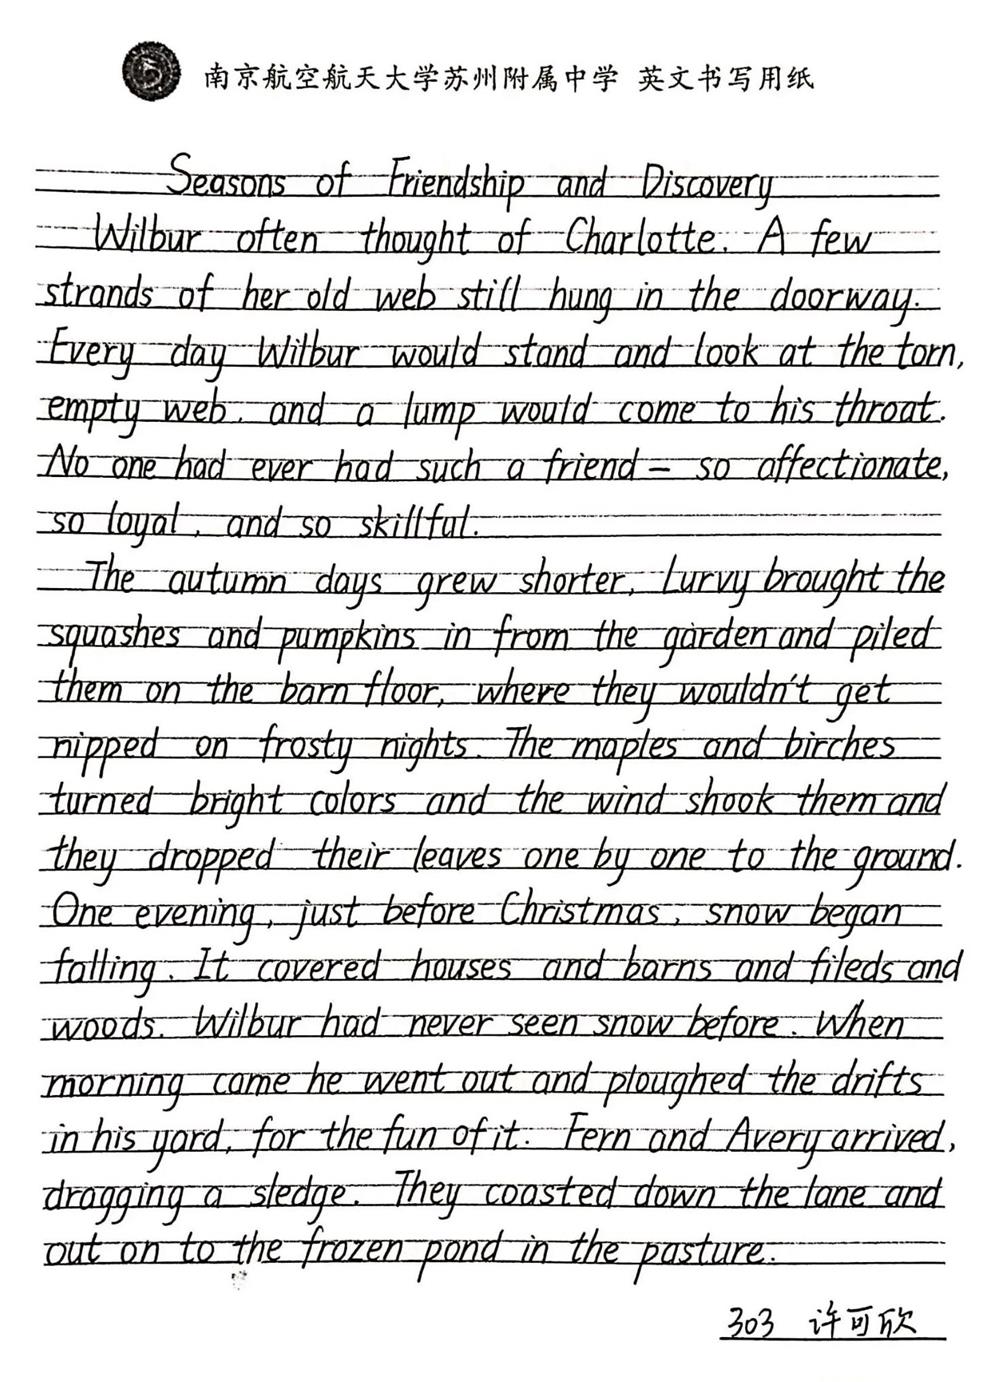 南京航空航天大学苏州附属中学 英文书写用纸
Seasons of Friendship and Discovery
Wilbur often thought of Charlotte. A few
strands of her old web still hung in the doorway.
Every day Wilbur would stand and look at the torn,
empty web, and a lump would come to his throat.
No one had ever had such a friend — so affectionate,
so loyal, and so skillful.
The autumn days grew shorter, Lurvy brought the
squashes and pumpkins in from the garden and piled
them on the barn floor, where they wouldn't get
nipped on frosty nights. The maples and birches
turned bright colors and the wind shook them and
they dropped their leaves one by one to the ground.
One evening, just before Christmas, snow began
falling. It covered houses and barns and fileds and
woods. Wilbur had never seen snow before. When
morning came he went out and ploughed the drifts
in his yard, for the fun of it. Fern and Avery arrived,
dragging a sledge. They coasted down the lane and
out on to the frozen pond in the pasture.
303 许可欣